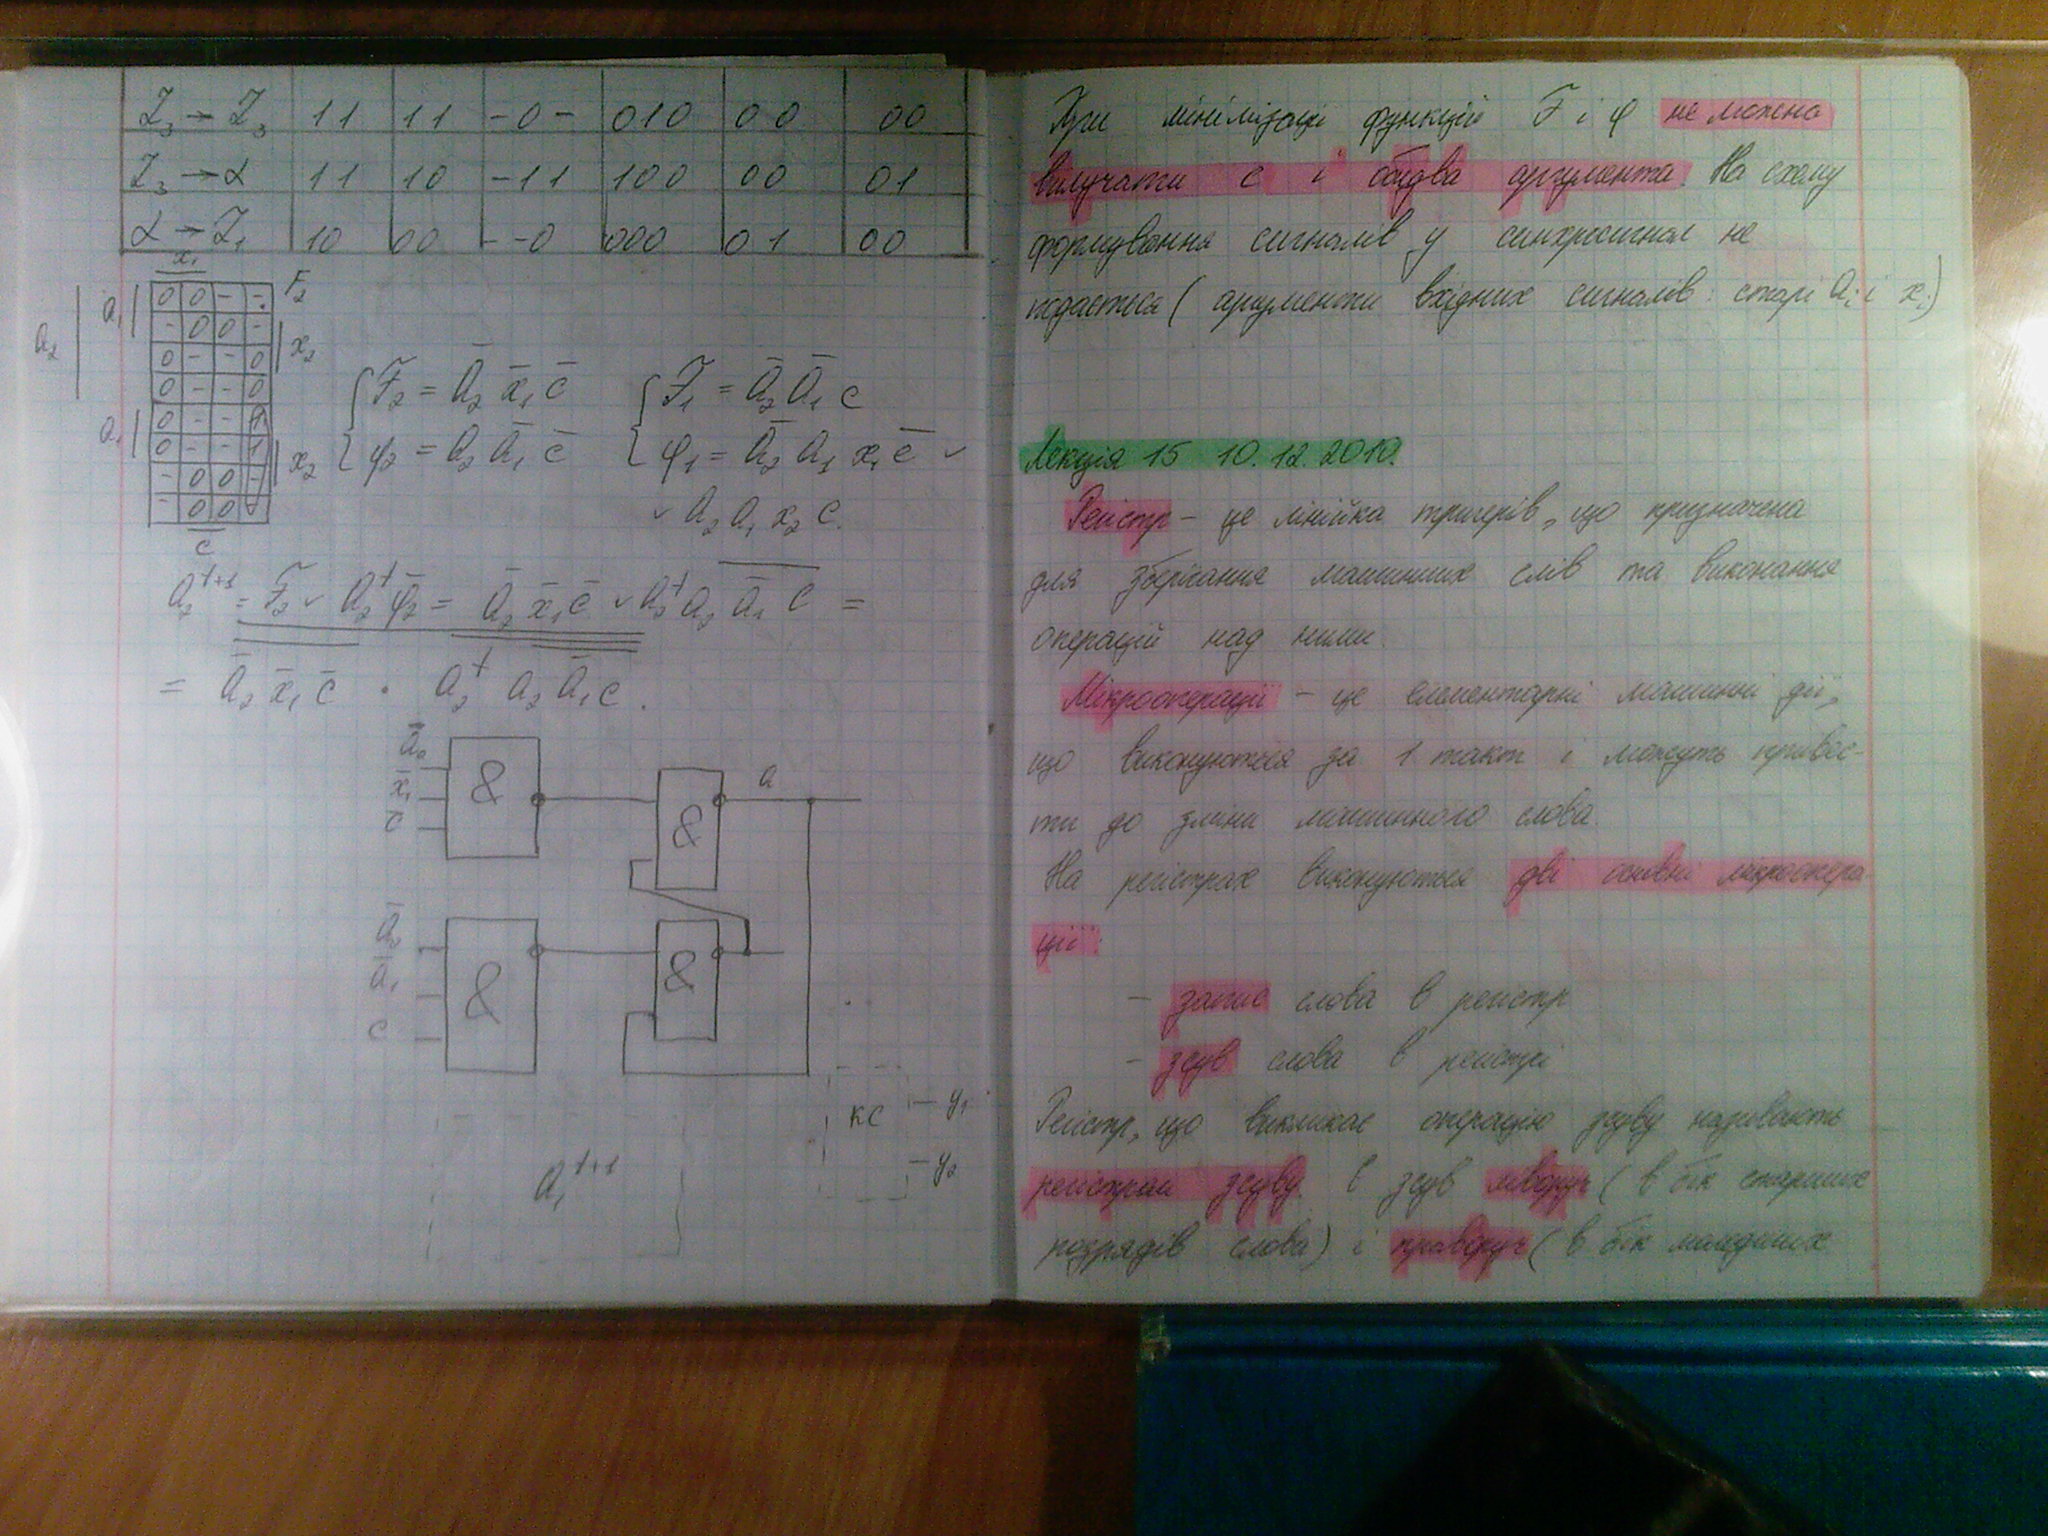 Z₃→Z₃ 11 11 -0- 010 00 00
Z₃→α 11 10 -11 100 00 01
α→Z₁ 10 00 --0 000 01 00
x₁
F₂
a₂ a₁ 0 0 - -
- 0 0 - x₂
0 - - 0
0 - - 0
a₁ 0 - - 1
0 - - 1 x₂
- 0 0 -
- 0 0
c
F₂ = a̅₂ x̅₁ c̅ F₁ = a̅₂ a̅₁ c
φ₂ = a₂ a̅₁ c̅ φ₁ = a̅₂ a₁ x₁ c̅ ∨
∨ a₂ a₁ x₂ c.
a₂ᵗ⁺¹ = F₂ ∨ a₂ᵗ φ̅₂ = a̅₂ x̅₁ c̅ ∨ a₂ᵗ a₂ a̅₁ c =
= a̅₂ x̅₁ c̅ · a₂ᵗ a₂ a̅₁ c.
a̅₀
x̅₁
c̅
&
&
a
a̅₀
a̅₁
c
&
&
КС y₁
y₂
a₁ᵗ⁺¹
При мінімізації функцій F і φ не можна
вилучати c і обидва аргумента. На схему
формування сигналів y синхросигнал не
подається (аргументи вхідних сигналів: старі aᵢ і xᵢ)
Лекція 15 10.12.2010.
Регістр – це лінійка тригерів, що призначена
для зберігання машинних слів та виконання
операцій над ними.
Мікрооперації – це елементарні машинні дії,
що виконуються за 1 такт і можуть привес-
ти до зміни машинного слова.
На регістрах виконуються дві основні мікроопера
ції:
– запис слова в регістр
– зсув слова в регістрі
Регістр, що викликає операцію зсуву називають
регістром зсуву. Є зсув ліворуч (в бік старших
розрядів слова) і праворуч (в бік молодших